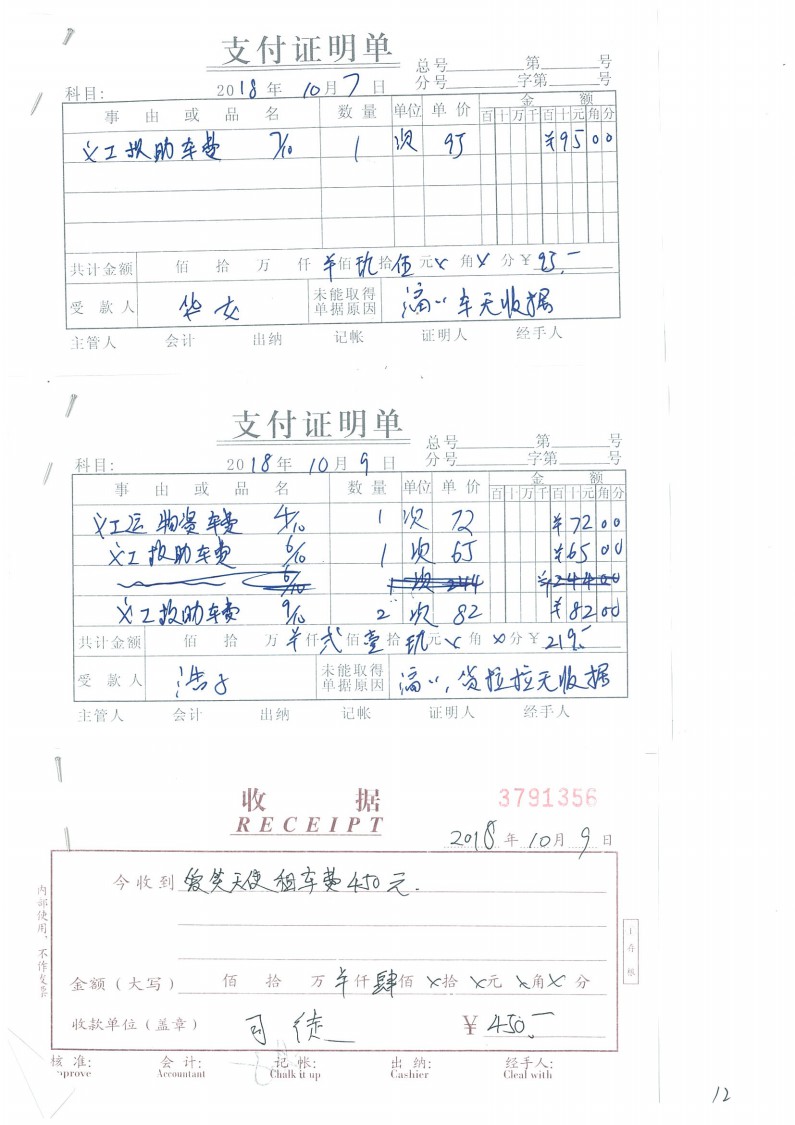 支付证明单
总号 第 号
分号 字第 号
科目: 2018年 10月7日
事由或品名 数量 单位 单价 金额
百十万千百十元角分
义工救助车费 7/10 1 次 95 ¥9500
共计金额 佰 拾 万 仟 ¥佰玖拾伍元×角×分 ¥95.-
受款人 华女 未能取得单据原因 滴滴车无收据
主管人 会计 出纳 记帐 证明人 经手人
支付证明单
总号 第 号
分号 字第 号
科目: 2018年 10月9日
事由或品名 数量 单位 单价 金额
百十万千百十元角分
义工运物资车费 4/10 1 次 72 ¥7200
义工救助车费 6/10 1 次 65 ¥6500
6/10 1 次 244 ¥24400
义工救助车费 9/10 2 次 82 ¥8200
共计金额 佰 拾 万 ¥仟贰佰壹拾玖元×角×分 ¥219.-
受款人 浩子 未能取得单据原因 滴滴,货拉拉无收据
主管人 会计 出纳 记帐 证明人 经手人
收据
3791356
RECEIPT
2018年10月9日
今收到 爱笑天使租车费450元.
内部使用,不作发票
金额(大写) 佰 拾 万 ¥仟肆佰×拾×元×角×分
收款单位(盖章) 司徒 ¥450.-
核准: 会计: 记帐: 出纳: 经手人:
pprove Accountant Chalk it up Cashier Cleal with
12